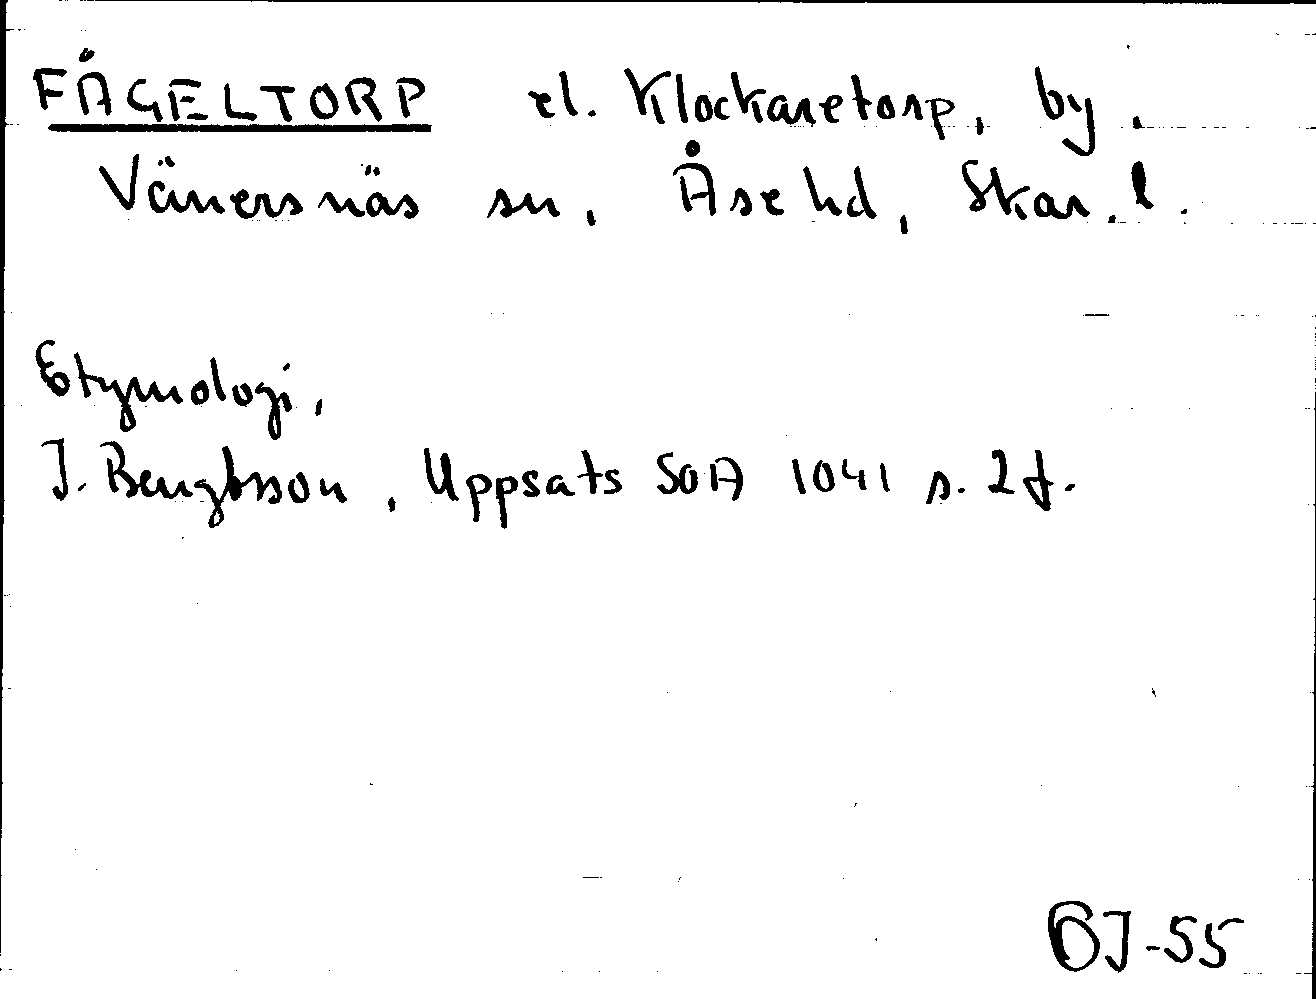 FÅGELTORP el. Klockaretorp, by.
Vänersnäs sn, Åse hd, Skar. l.
Etymologi,
J. Bengtsson, Uppsats SOA 1041 s. 2 f.
ÖJ-55